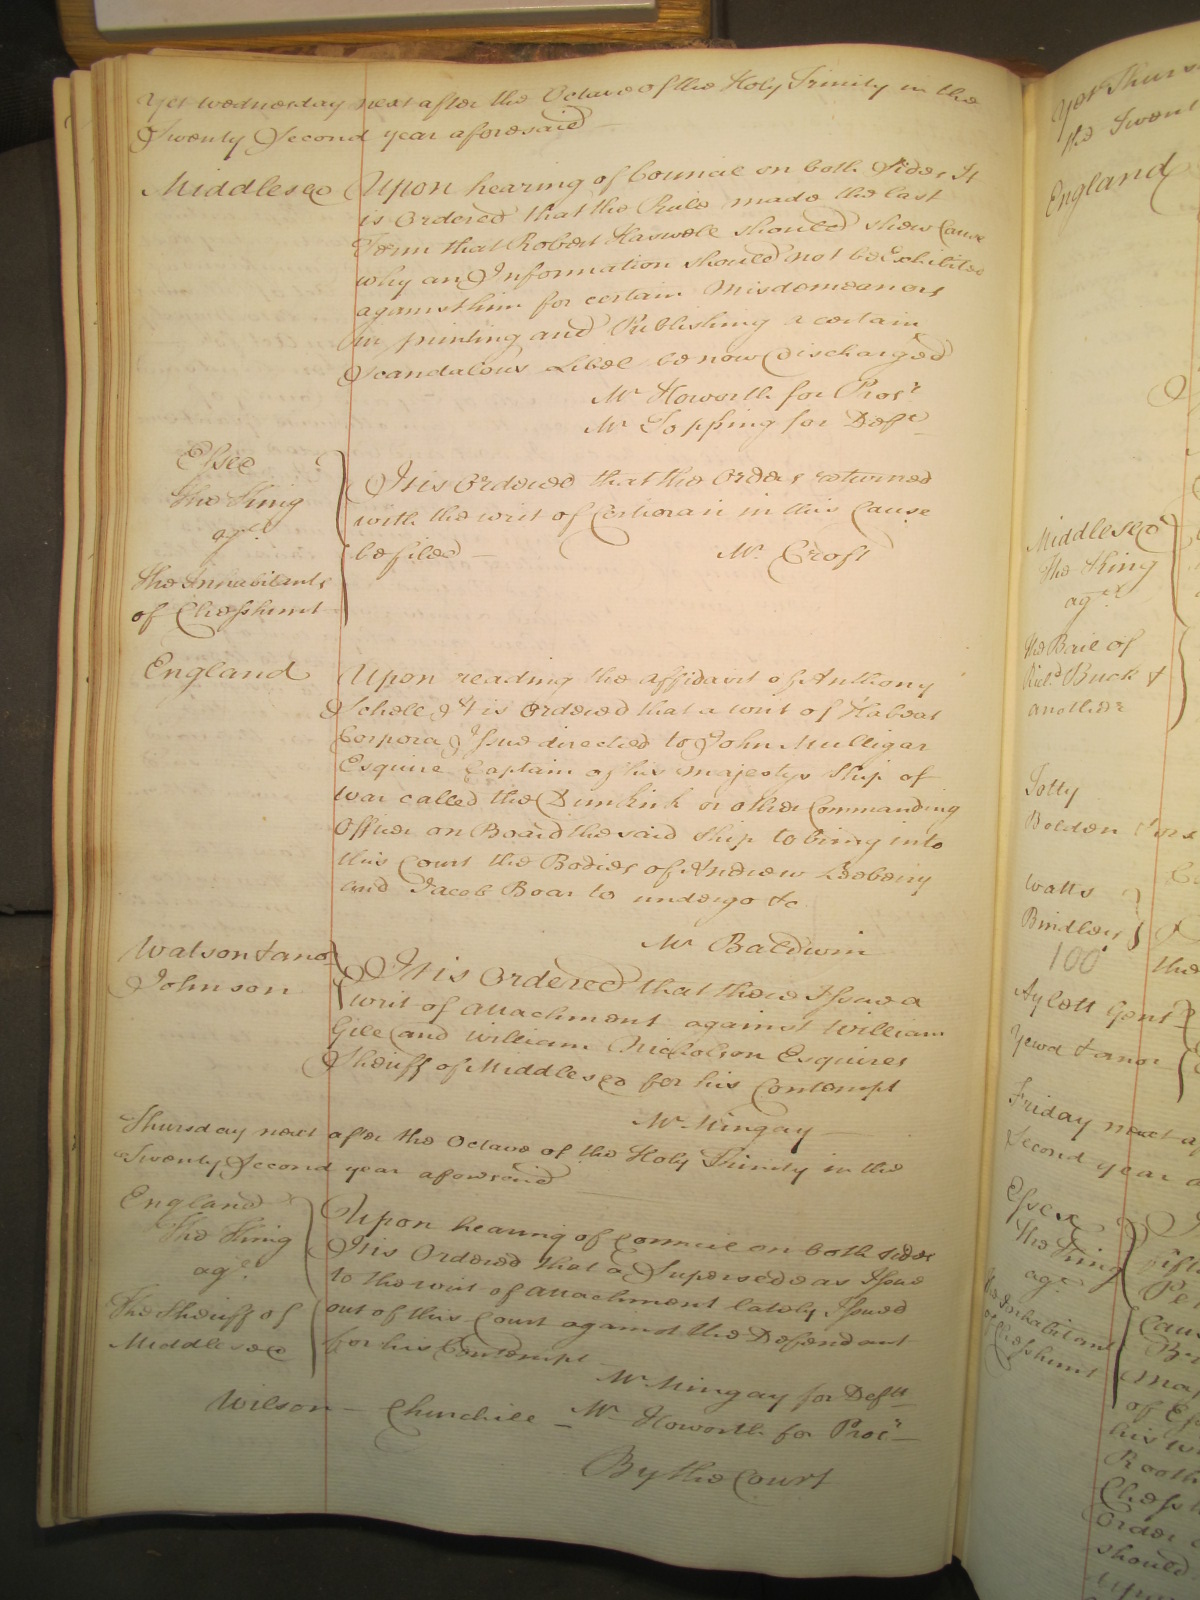 Yet Wednesday next after the Octave of the Holy Trinity in the
Twenty Second year aforesaid
Middlesex Upon hearing of Councel on both Sides It
is Ordered that the Rule made the last
Term that Robert Haswell should shew Cause
why an Information should not be Exhibited
against him for certain Misdemeanors
in printing and Publishing a certain
Scandalous Libel be now Discharged
Mr Howorth for Prosr
Mr Topping for Deft
Essex
The King
agt
the Inhabitants
of Cheshunt
It is Ordered that the Orders returned
with the writ of Certiorari in this Cause
be filed — Mr. Croft
England Upon reading the affidavit of Anthony
Schele It is Ordered that a writ of Habeas
Corpora Issue directed to John Mulligar
Esquire Captain of his Majestys Ship of
War called the Dunkirk or other Commanding
Officer on Board the said Ship to bring into
this Court the Bodies of Andrew
and Jacob Boar to undergo &c
Mr Baldwin
Watson & anor
Johnson
It is Ordered that there Issue a
writ of attachment against William
Gill and William Nicholson Esquires
Sheriff of Middlesex for his Contempt
Mr Mingay
Thursday next after the Octave of the Holy Trinity in the
Twenty Second year aforesaid
England
The King
agt
The Sheriff of
Middlesex
Upon hearing of Councel on both sides
It is Ordered that a Supersedeas Issue
to the writ of attachment lately Issued
out of this Court against the Defendant
for his Contempt
Mr Mingay for Deft
Wilson — Churchill — Mr Howorth for Prosr
By the Court
Yet Thurs
the Twent
England
Middlesex
The King
agt
the Bail of
Richd Buck &
another
Jolly
Bolden
Watts
Bindley
100
the
Aylett Gent
Yewd & anor
Friday next a
Second year a
Essex
The King
agt
the Inhabitants
of Cheshunt
fifte
Caus
of Es
his w
Rooth
Chesh
Order
should
upon